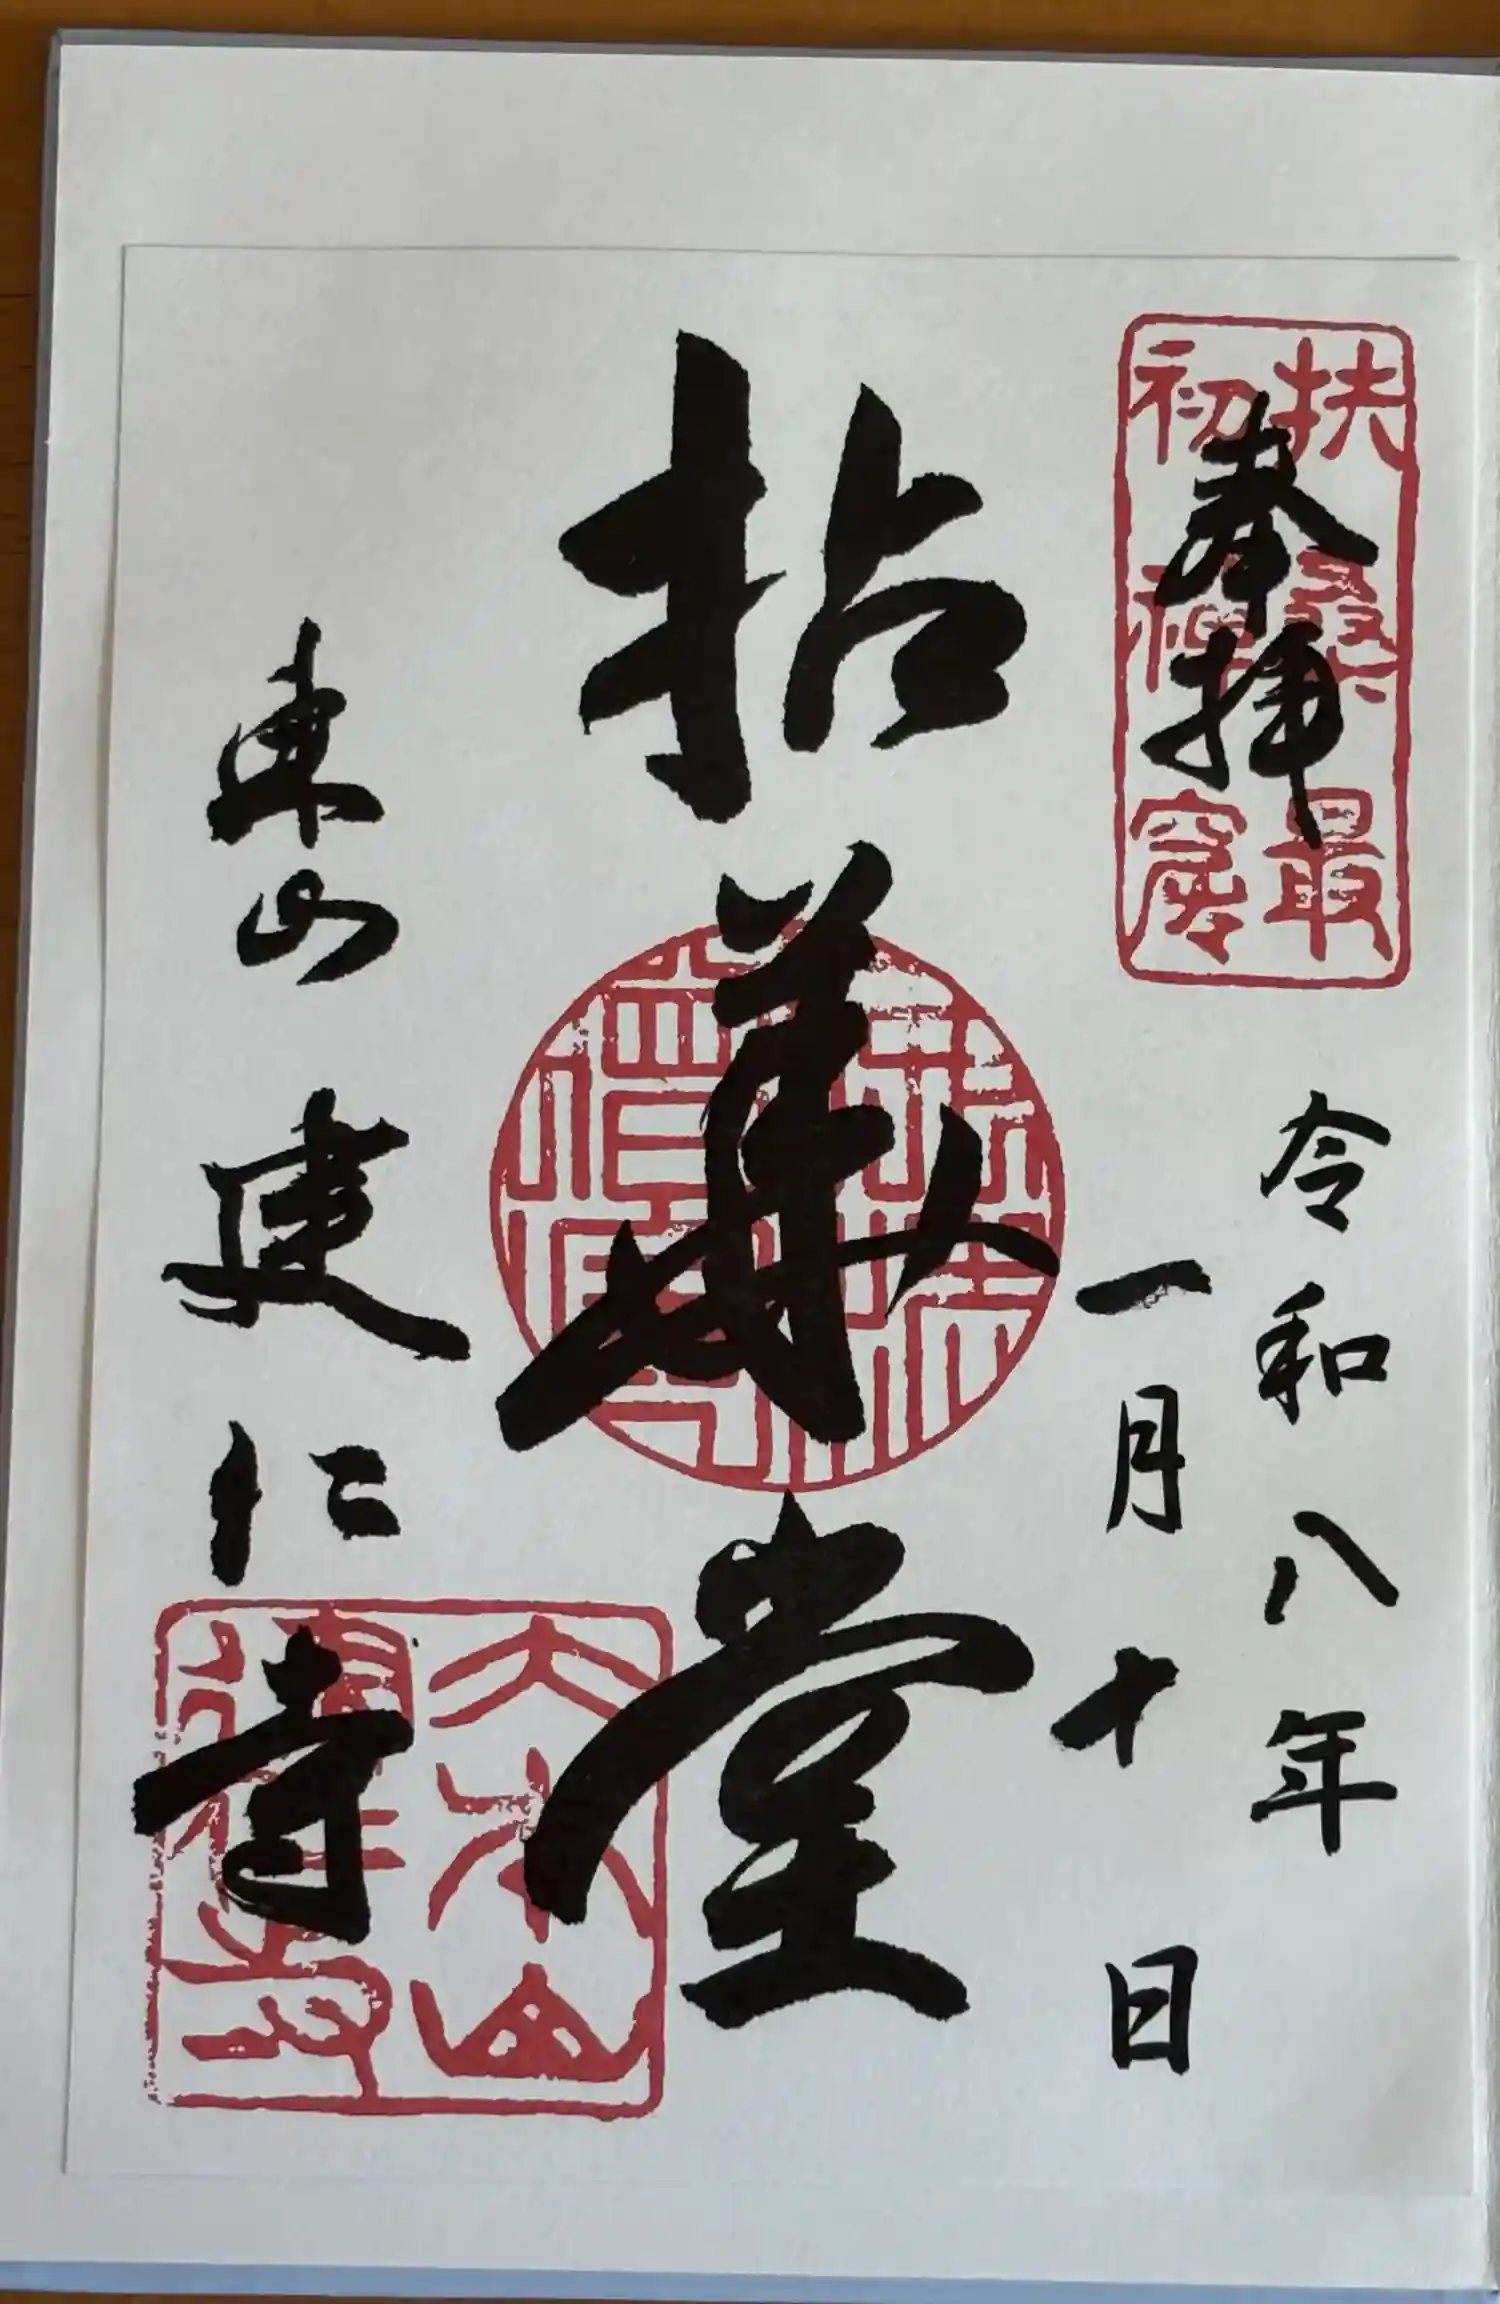 奉拝
扶桑最
初禅窟
令和八年
一月十日
拈華堂
東山
建仁寺
大本山
建仁寺